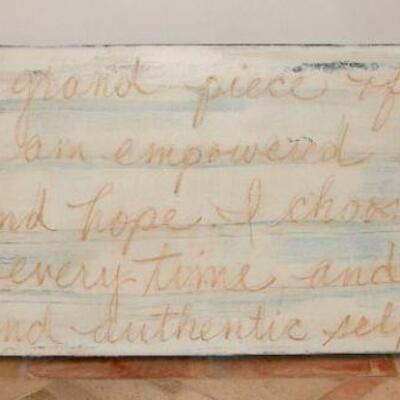 grand piece of
am empowered
nd hope. I choos
every time and
nd authentic self